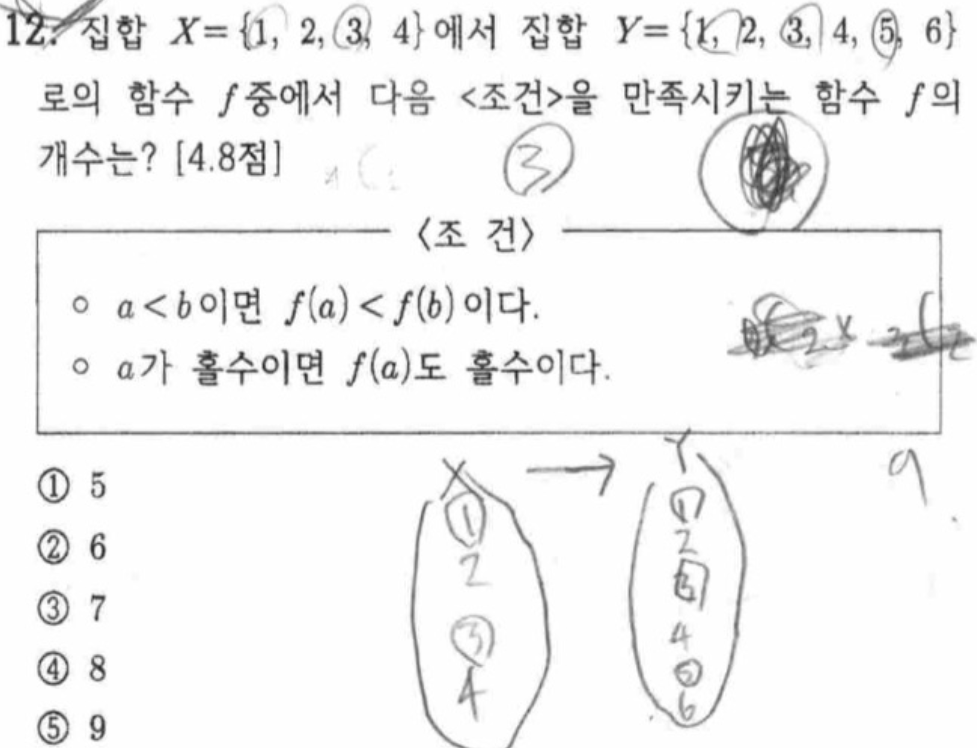 12. 집합 X={1, 2, 3, 4}에서 집합 Y={1, 2, 3, 4, 5, 6}
로의 함수 f중에서 다음 <조건>을 만족시키는 함수 f의
개수는? [4.8점]
③
〈조 건〉
○ a<b이면 f(a)<f(b)이다.
○ a가 홀수이면 f(a)도 홀수이다.
① 5
② 6
③ 7
④ 8
⑤ 9
X → Y
1 1
2 2
3 3
4 4
5
6
9